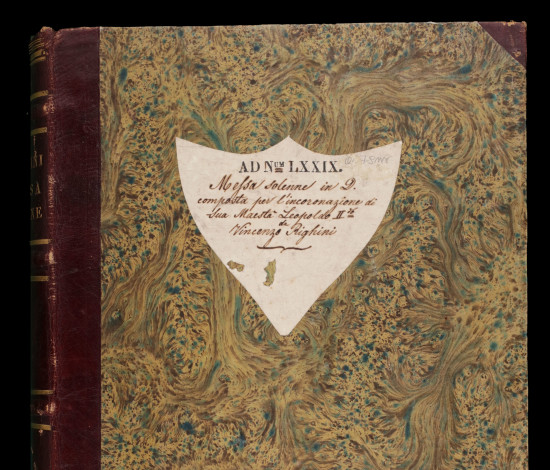 AD NUM LXXIX.
Messa solenne in D.
composta per l'incoronazione di
Sua Maestà Leopoldo II.do
da
Vincenzo Righini